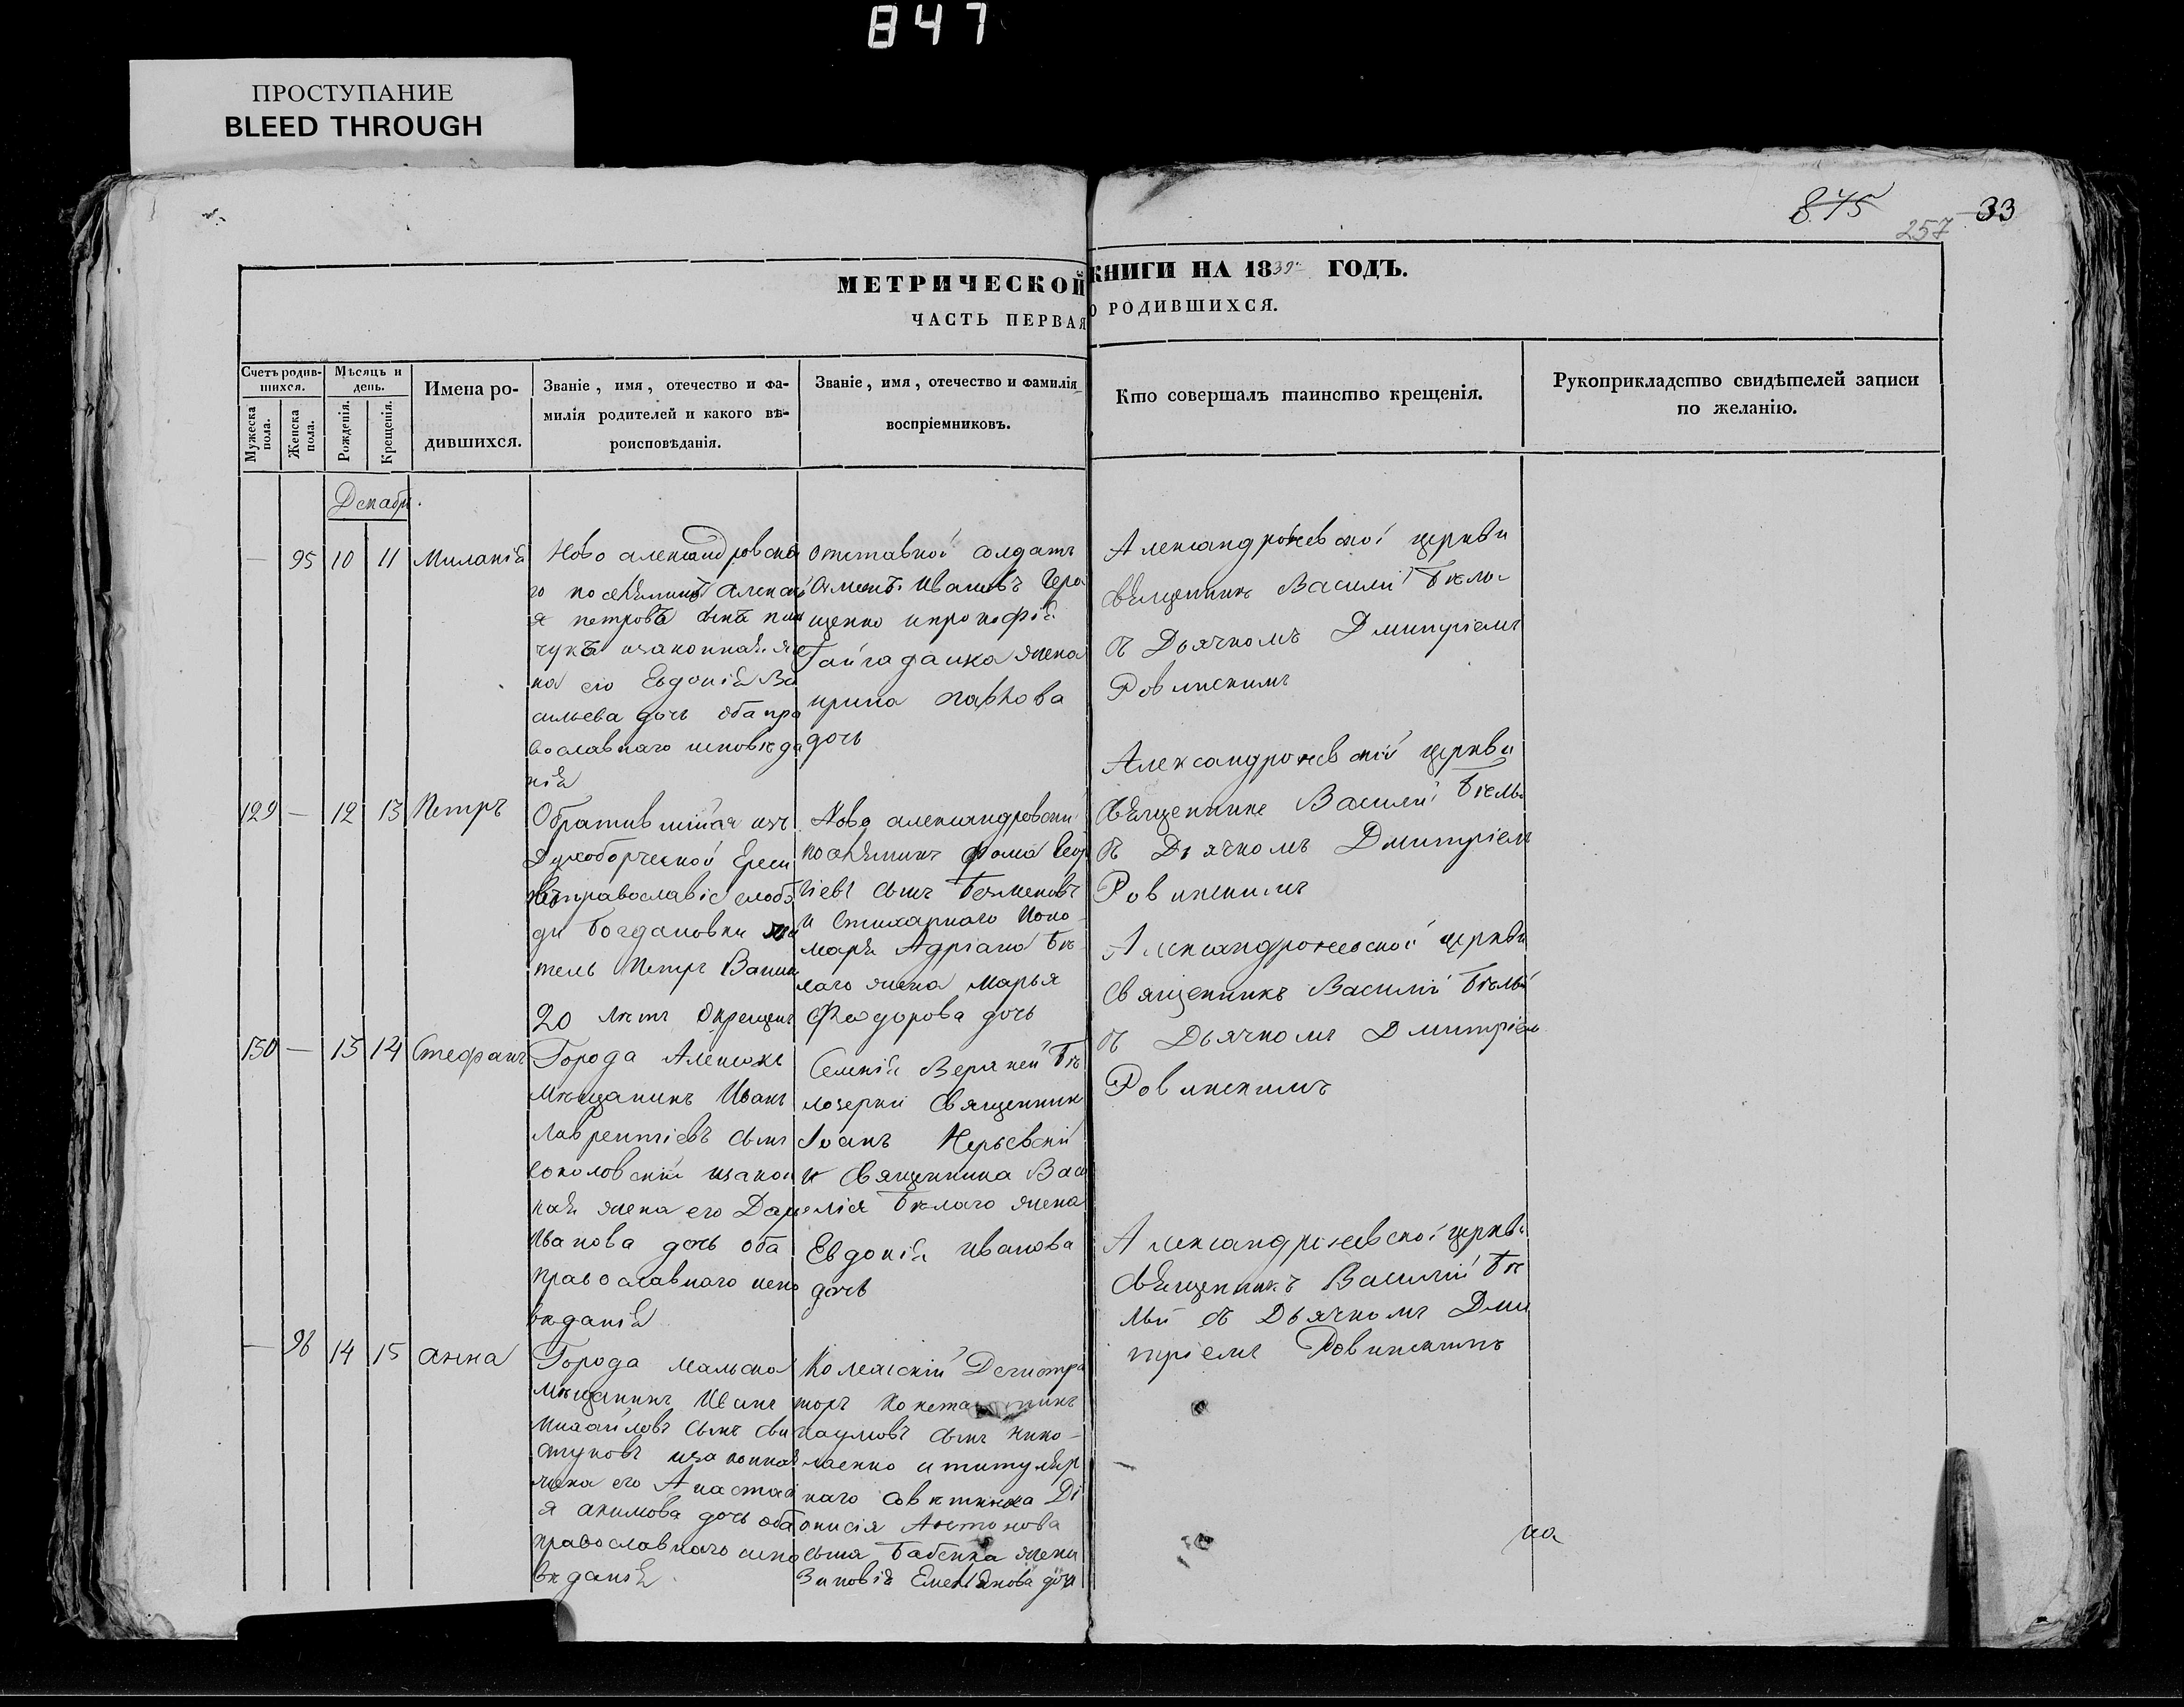 847
ПРОСТУПАНИЕ
BLEED THROUGH
845
257
33
МЕТРИЧЕСКОЙ КНИГИ НА 1839 ГОДЪ.
ЧАСТЬ ПЕРВАЯ О РОДИВШИХСЯ.
Счетъ родив-
шихся.
Мужеска
пола.
Женска
пола.
Мѣсяцъ и
день.
Рожденія.
Крещенія.
Имена ро-
дившихся.
Званіе, имя, отечество и фа-
милія родителей и какого вѣ-
роисповѣданія.
Званіе, имя, отечество и фамилія
воспріемниковъ.
Кто совершалъ таинство крещенія.
Рукоприкладство свидѣтелей записи
по желанію.
Декабрь
— 95 10 11 Миланія
Ново александровска
го
я петровъ сынъ
чукъ изаконная же
на его Евдокія Ва
сильева дочь оба пра
вославнаго исповѣда
нія
отставной солдатъ
Иванъ
щенко и прокофія
Гайгадашка жена
ирина
дочь
Александроневской церкви
Священникъ Василій Бѣлы
съ Дьячкомъ Дмитріемъ
Ровинскимъ
129 — 12 13 Петръ
Обратившійся изъ
Духоборческой Ереси
въ православіе слобо
ди Богдановки жи
тель Петръ
20 лѣтъ окрещенъ
Ново александровски
посѣлянинъ фома Геор
гіевъ сынъ Безменовъ
и Стихарнаго Поно
маря Адріана Бѣ
лаго жена Марья
Федорова дочь
Александроневскій церкви
Священникъ Василій Бѣлы
съ Дьячкомъ Дмитріемъ
Ровинскимъ
130 — 13 14 Стефанъ
Города Алешокъ
мѣщанинъ Иванъ
Лаврентіевъ сынъ
соколовскій изакон
ная жена его Дарья
Иванова дочь оба
православнаго испо
вѣданія
Селенія Верхней Бѣ
лозерки Священник
Іоанъ
и Священника Васи
лія Бѣлаго жена
Евдокія Иванова
дочь
Александроневской церкви
Священникъ Василій Бѣлый
съ Дьячкомъ Дмитріем
Ровинскимъ
— 96 14 15 Анна
Города
мѣщанинъ Иванъ
михайловъ сынъ сви
стуновъ изаконная
жена его Анастасі
я акимова дочь оба
православнаго испо
вѣданія.
Колежскій Регистра
торъ
наумовъ сынъ Нико-
лаенко и титуляр
наго Совѣтника Ді
онисія Антонова
сына Бабенка жена
Зиновія Емельянова дочь
Александроневской церкви
Священникъ Василій Бѣ
лый съ Дьячкомъ Дми
тріемъ Ровинскимъ
на